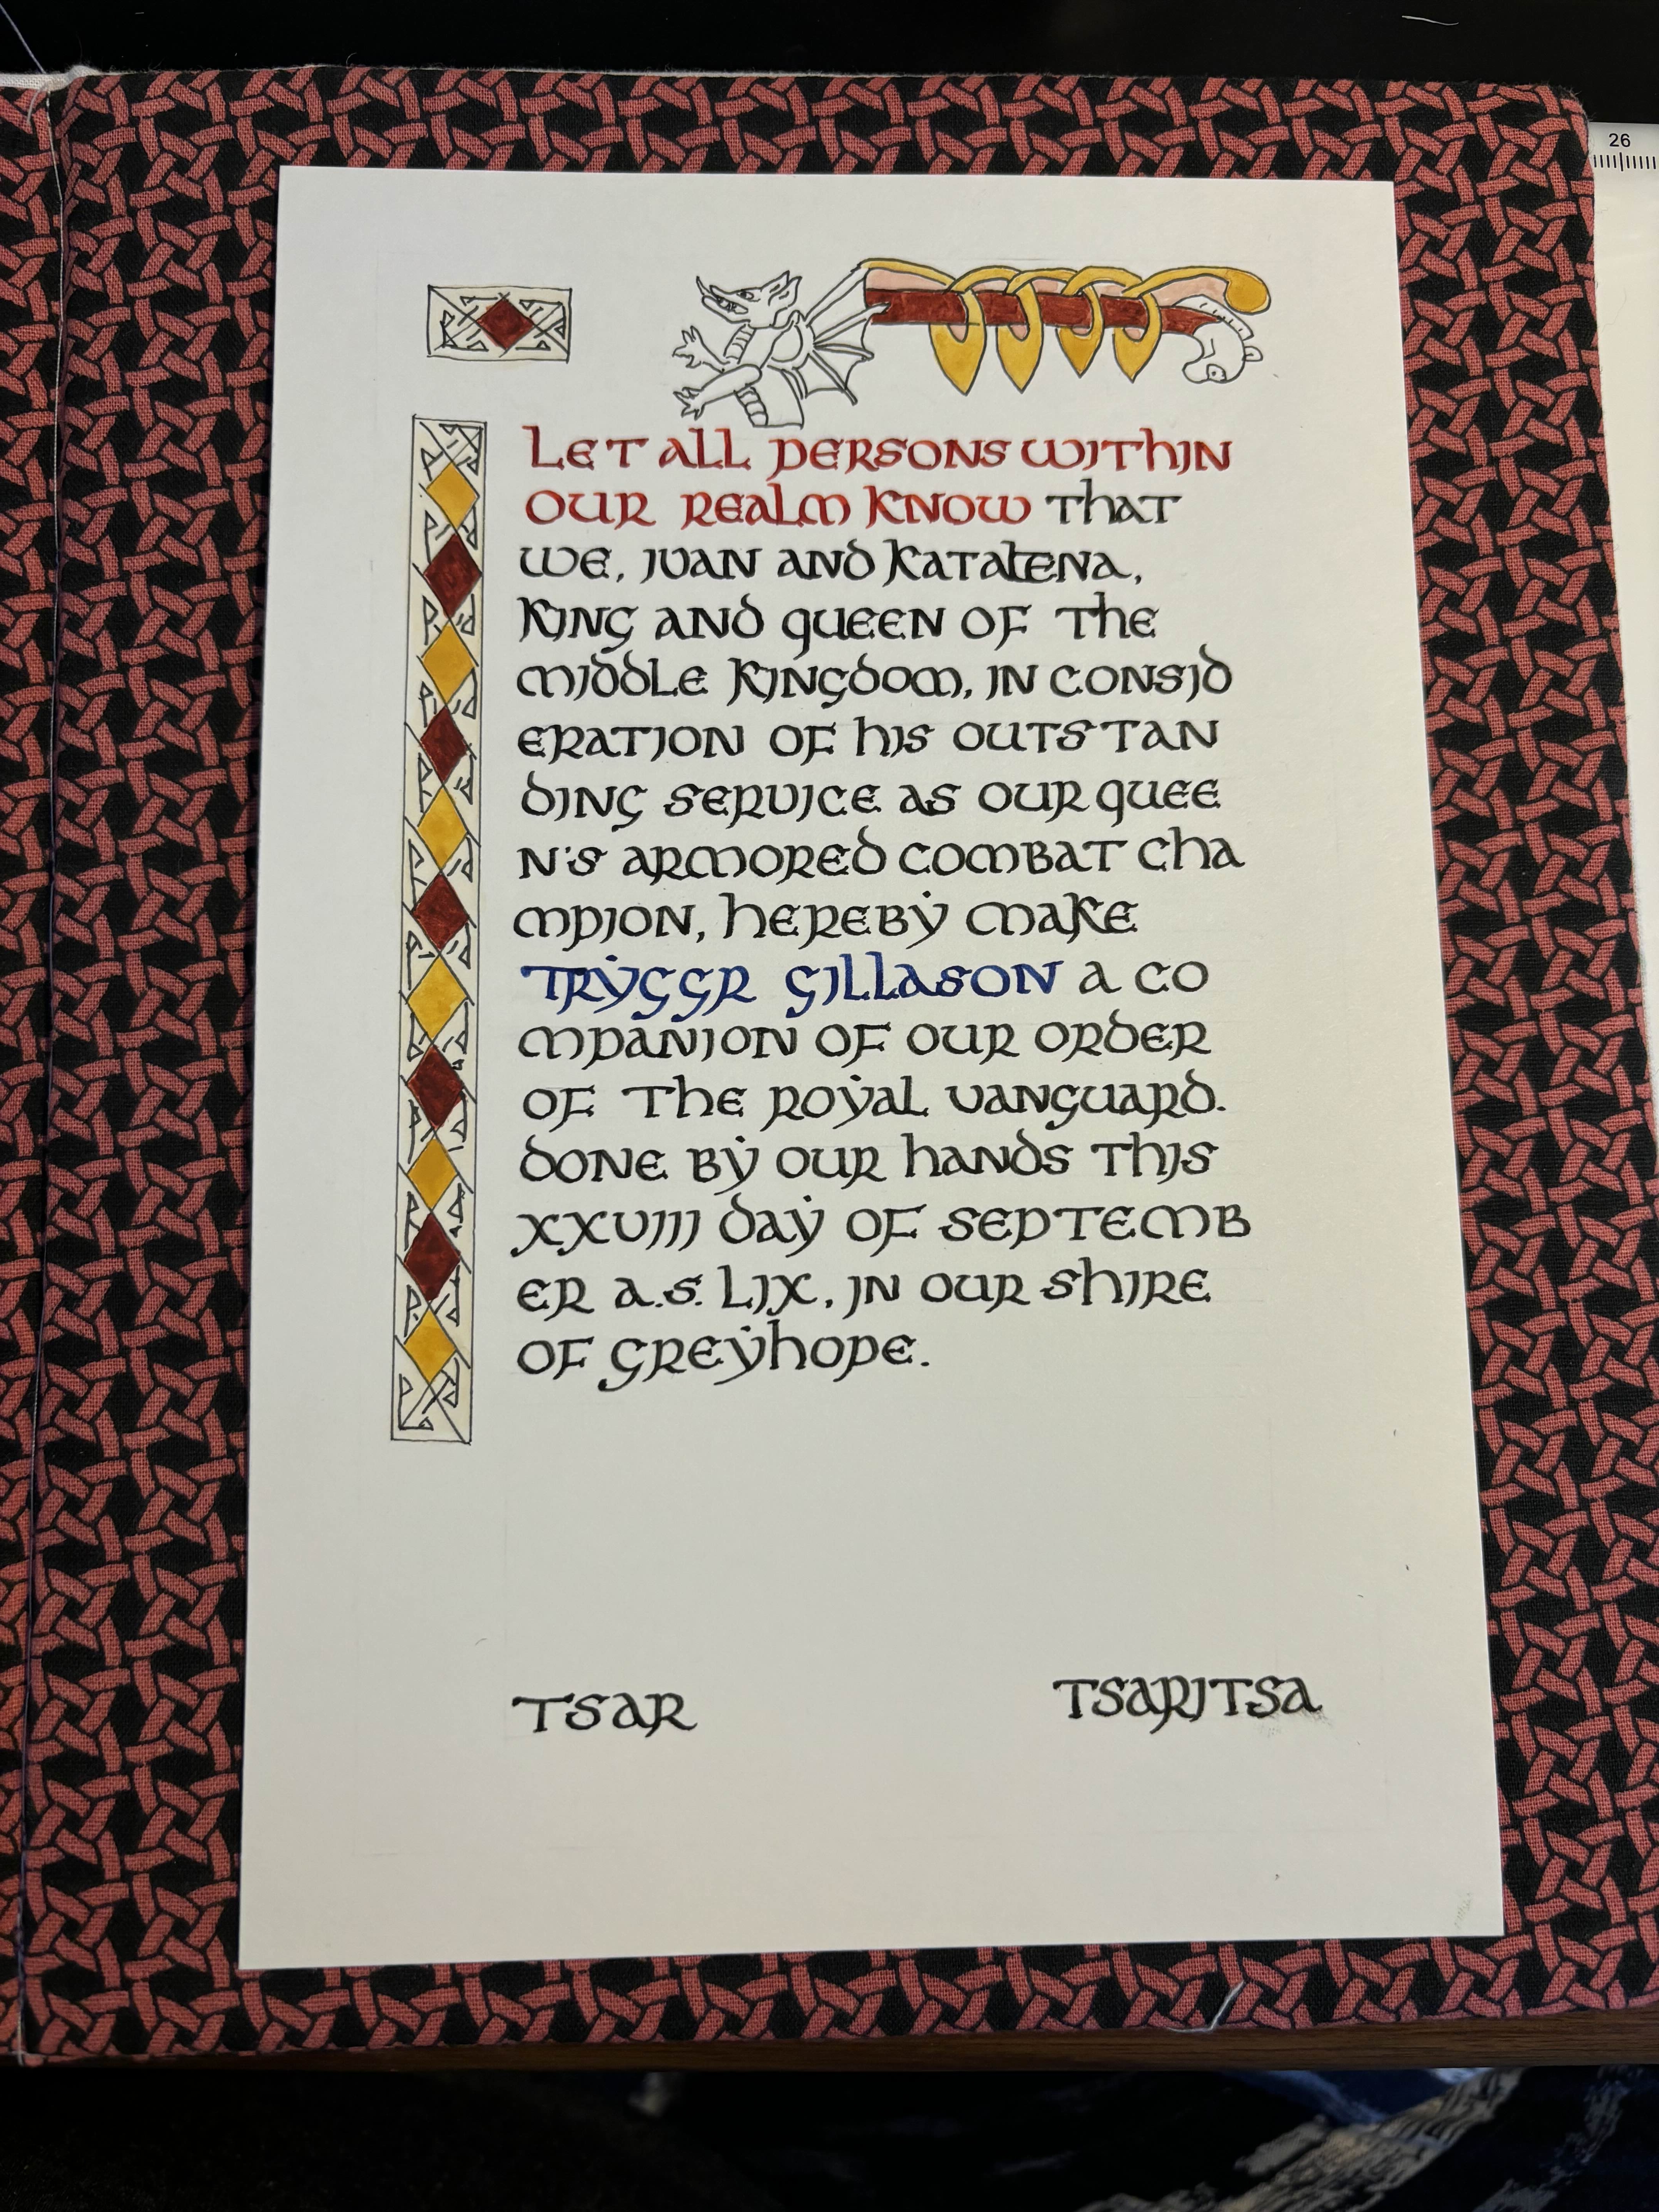 26
LET ALL PERSONS WITHIN
OUR REALM KNOW THAT
WE, IVAN AND KATALENA,
KING AND QUEEN OF THE
MIDDLE KINGDOM, IN CONSID
ERATION OF HIS OUTSTAN
DING SERVICE AS OUR QUEE
N'S ARMORED COMBAT CHA
MPION, HEREBY MAKE
TRYGGR GILLASON A CO
MPANION OF OUR ORDER
OF THE ROYAL VANGUARD.
DONE BY OUR HANDS THIS
XXVIII DAY OF SEPTEMB
ER A.S. LIX, IN OUR SHIRE
OF GREYHOPE.
TSAR TSARITSA